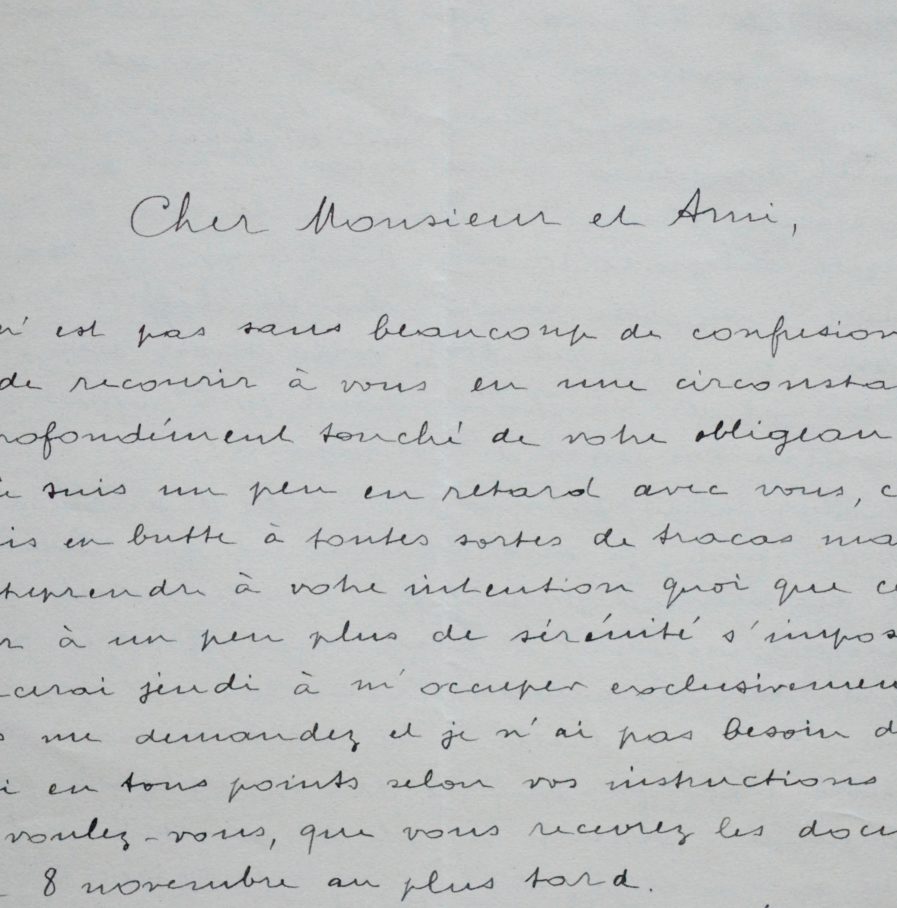 Cher Monsieur et Ami,
n'est pas sans beaucoup de confusion
de recourir à vous en une circonsta
rofondément touché de votre obligean
suis un peu en retard avec vous, c
is en butte à toutes sortes de tracas ma
treprendre à votre intention quoi que ce
r à un peu plus de sérénité s'impos
cerai jeudi à m'occuper exclusivemen
s me demandez et je n'ai pas besoin d
i en tous points selon vos instructions
voulez-vous, que vous recevrez les docu
8 novembre au plus tard.